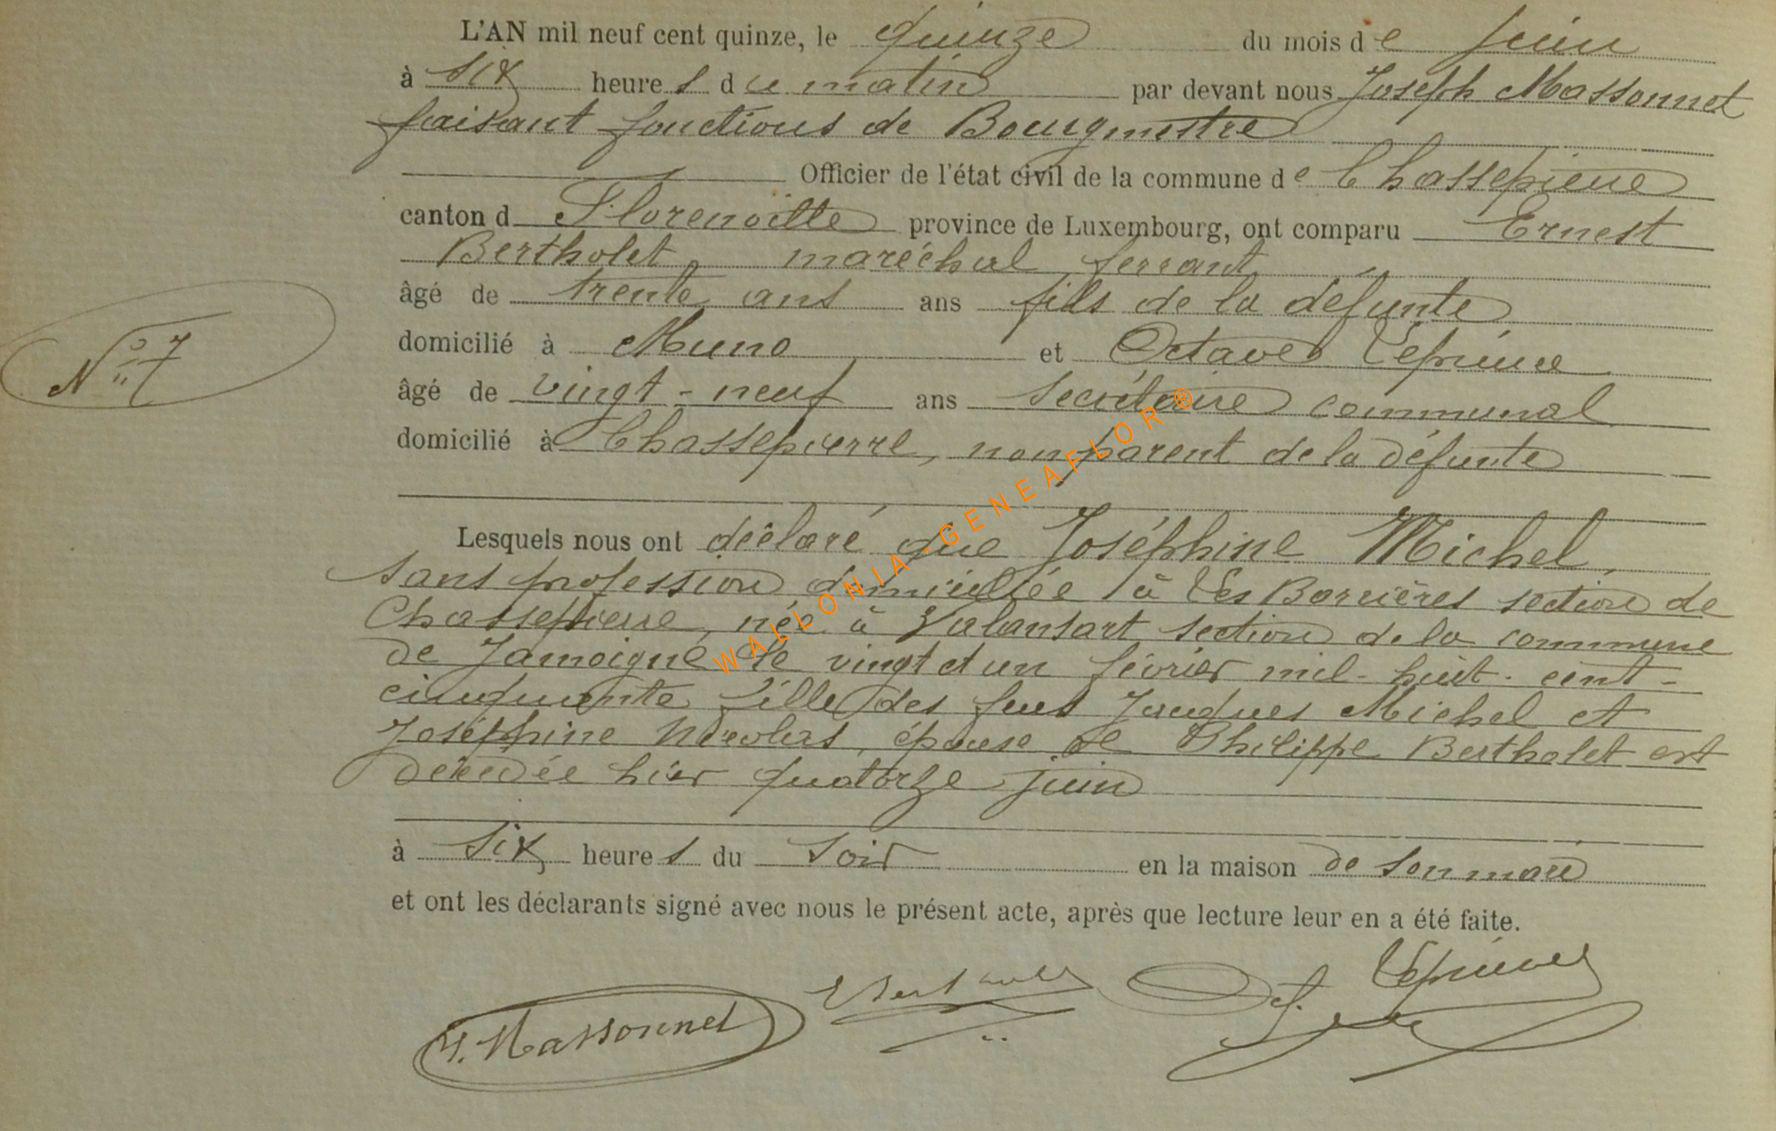 L'AN mil neuf cent quinze, le quinze du mois de juin
à six heures du matin par devant nous Joseph Massonnet
faisant fonctions de Bourgmestre
Officier de l'état civil de la commune de Chassepierre
canton d Florenville province de Luxembourg, ont comparu Ernest
Bertholet maréchal ferrant
âgé de trente ans ans fils de la défunte
domicilié à Muno et Octave Leprince
N° 7
âgé de vingt-neuf ans secrétaire communal
domicilié à Chassepierre, non parent de la défunte
Lesquels nous ont déclaré que Joséphine Michel,
sans profession, domiciliée à Les Barrières section de
Chassepierre, née à Valansart section de la commune
de Jamoigne le vingt et un février mil-huit-cent-
cinquante fille des feus Jacques Michel et
Joséphine Nicolas, épouse de Philippe Bertholet est
décédée hier quatorze juin
à six heures du soir en la maison de son mari
et ont les déclarants signé avec nous le présent acte, après que lecture leur en a été faite.
J. Massonnet Leprince
WALLONIA-GENEAFLOR®